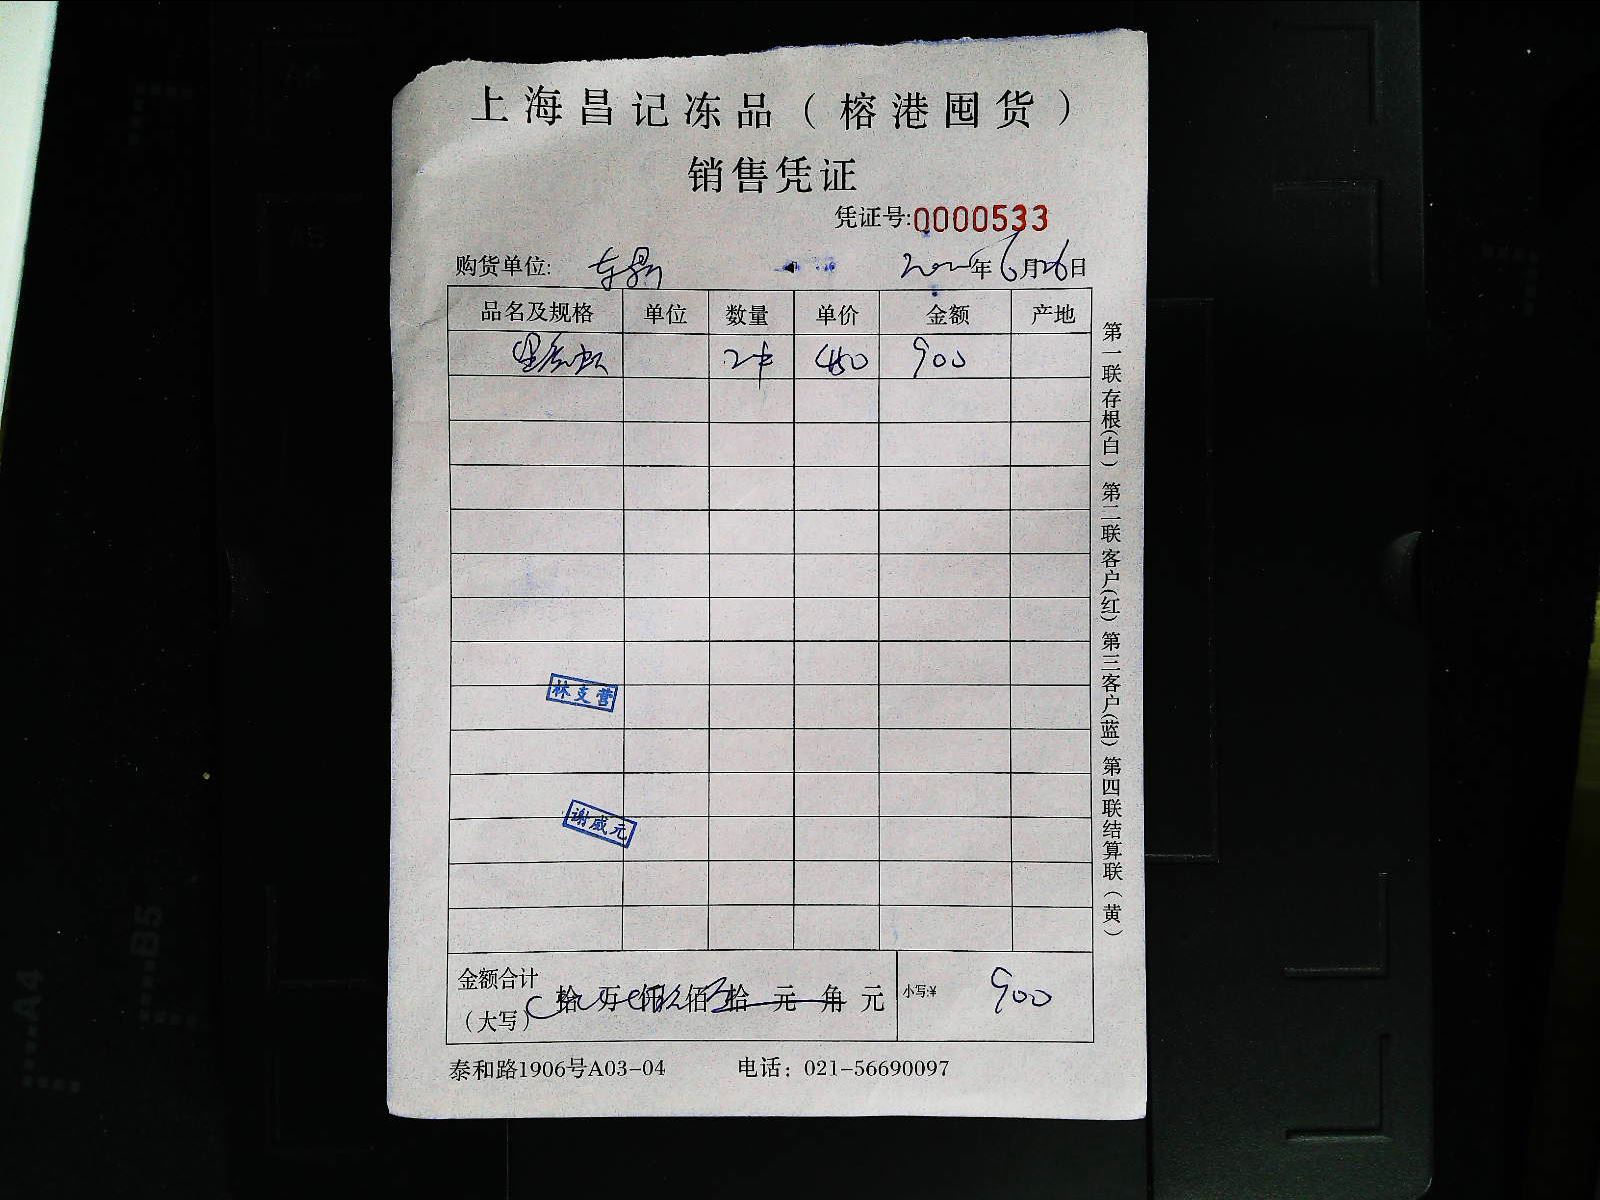 上海昌记冻品（榕港囤货）
销售凭证
凭证号:0000533
购货单位: 年6月26日
品名及规格 单位 数量 单价 金额 产地
2件 450 900
林支营
谢威元
金额合计
（大写） 拾 万 仟 佰 拾 元 角 元 小写:¥ 900
泰和路1906号A03-04 电话：021-56690097
第一联存根(白) 第二联客户(红) 第三客户(蓝) 第四联结算联（黄）
A4
B5